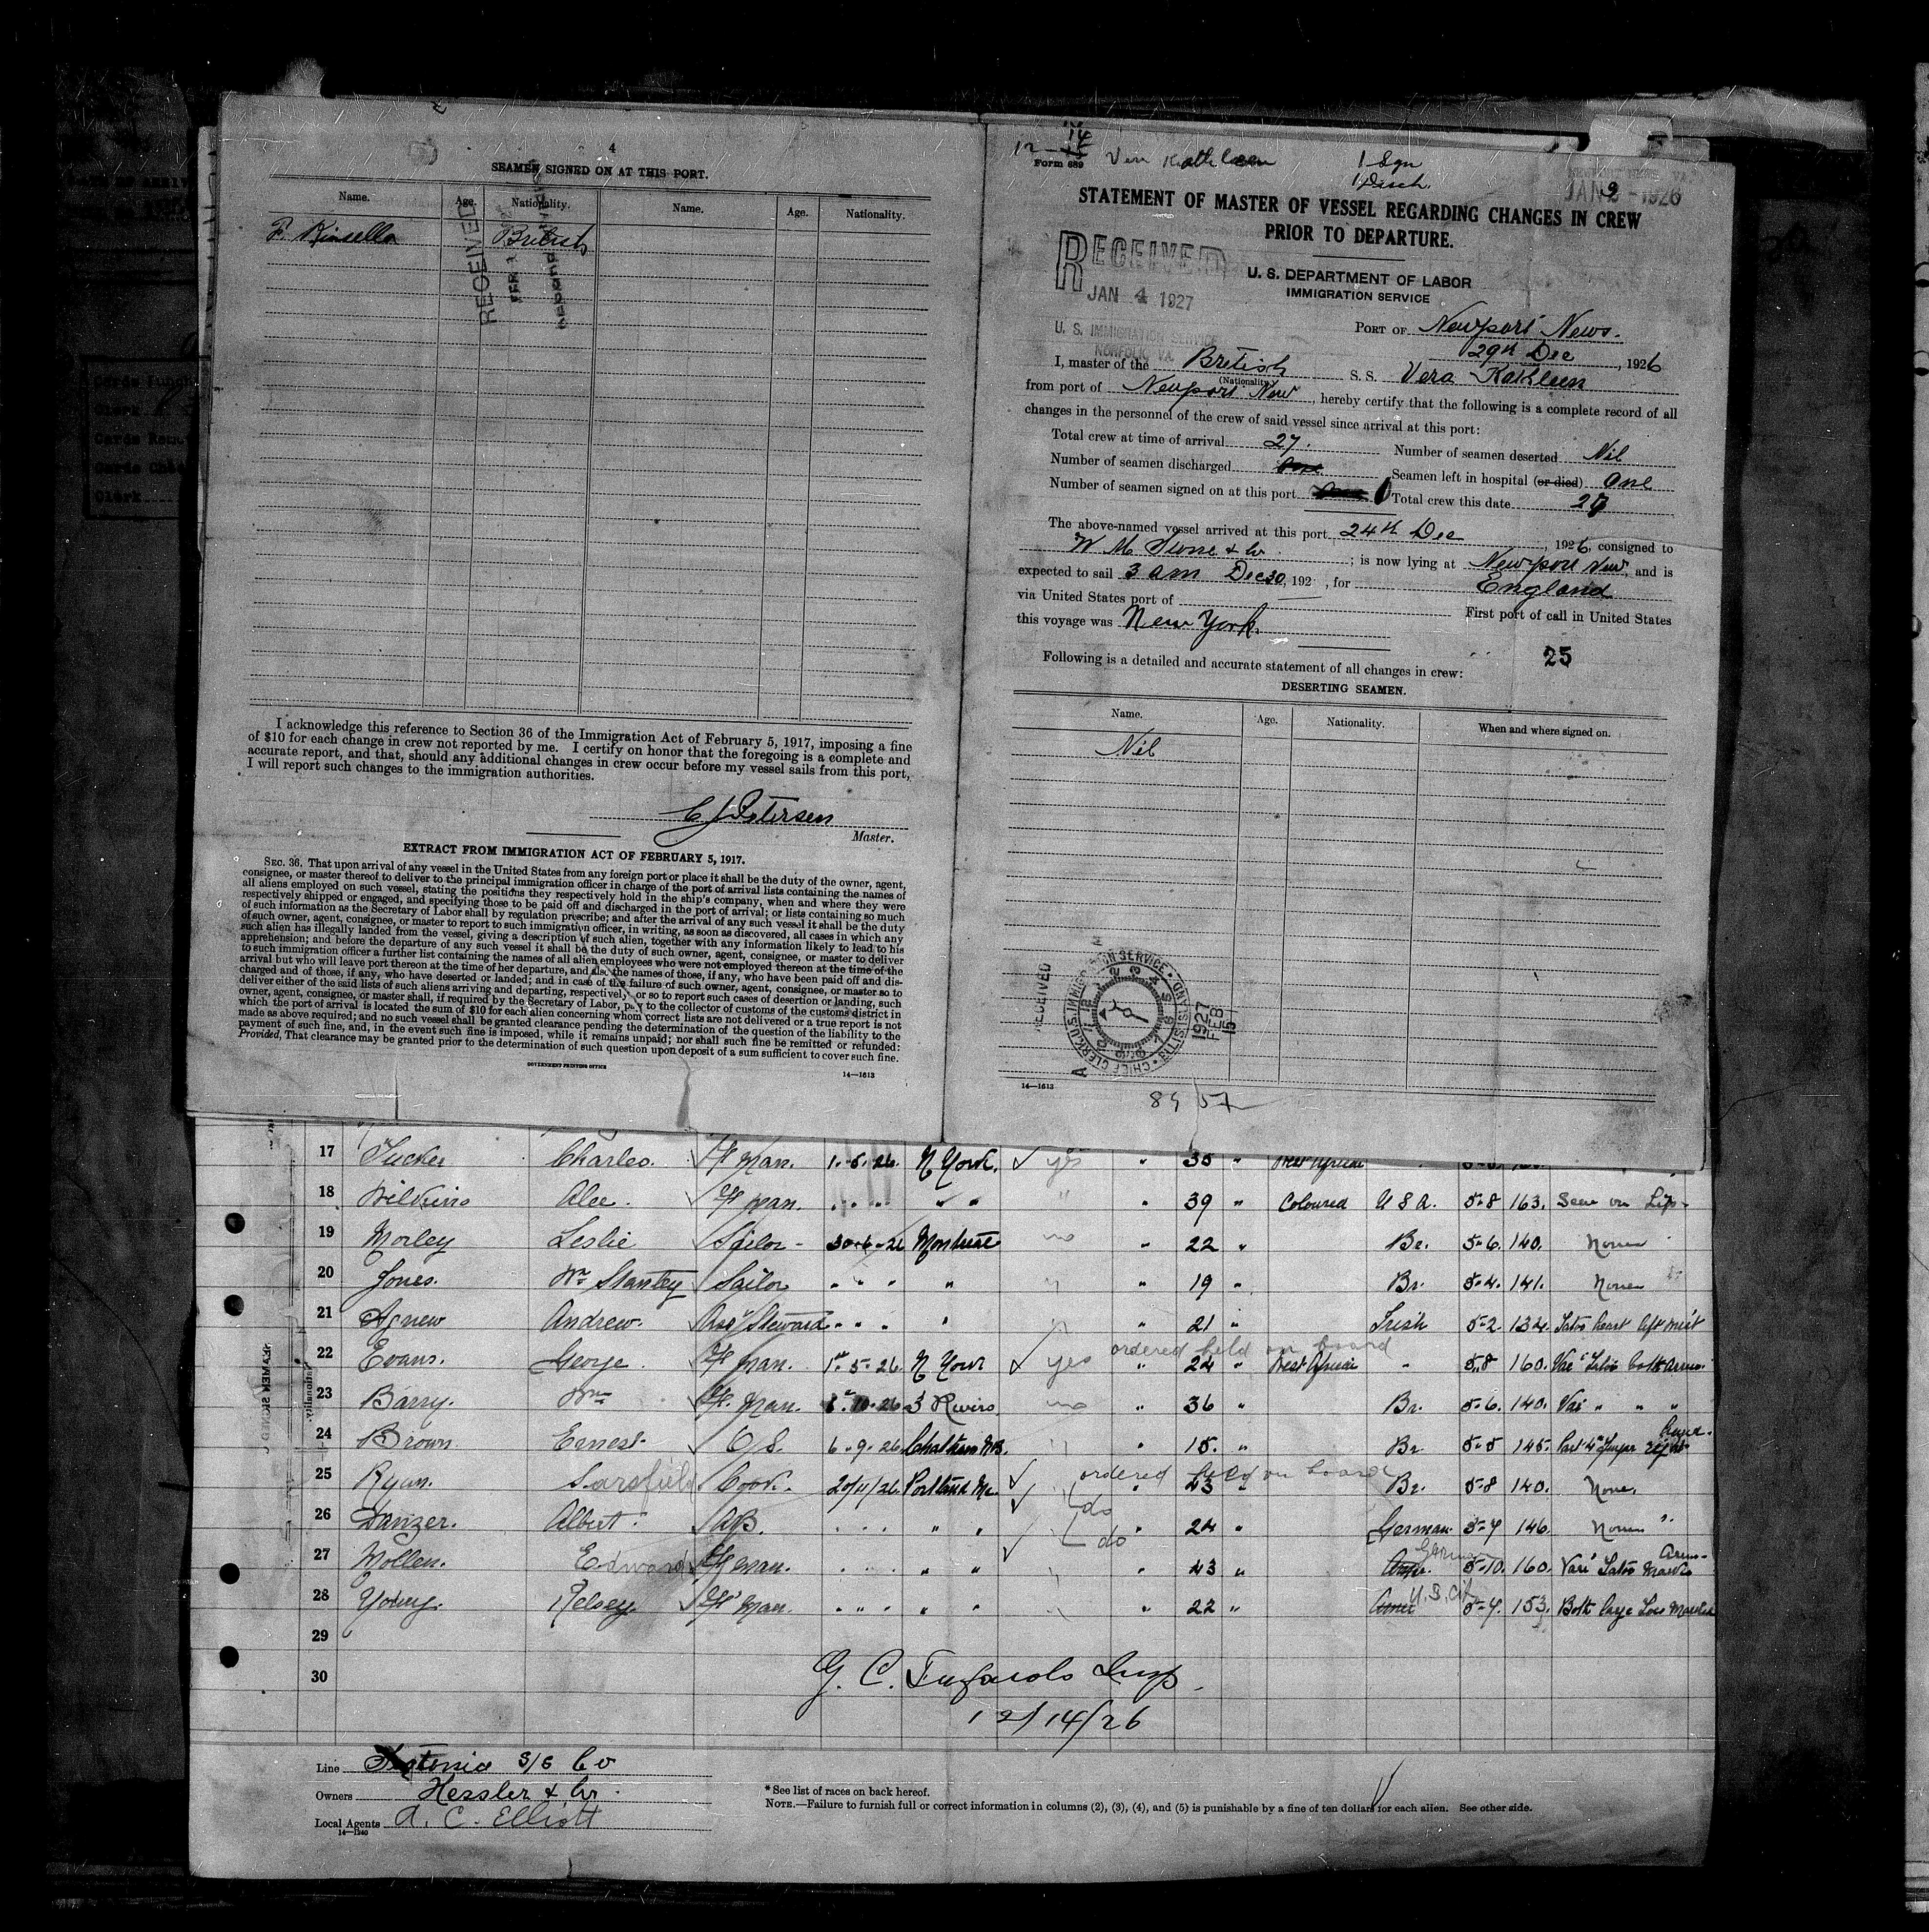 4
SEAMEN SIGNED ON AT THIS PORT.
Name. Age. Nationality. Name. Age. Nationality.
F. Kinsella British
RECEIVED
I acknowledge this reference to Section 36 of the Immigration Act of February 5, 1917, imposing a fine
of $10 for each change in crew not reported by me. I certify on honor that the foregoing is a complete and
accurate report, and that, should any additional changes in crew occur before my vessel sails from this port,
I will report such changes to the immigration authorities.
C J Petersen
Master.
EXTRACT FROM IMMIGRATION ACT OF FEBRUARY 5, 1917.
SEC. 36. That upon arrival of any vessel in the United States from any foreign port or place it shall be the duty of the owner, agent,
consignee, or master thereof to deliver to the principal immigration officer in charge of the port of arrival lists containing the names of
all aliens employed on such vessel, stating the positions they respectively hold in the ship's company, when and where they were
respectively shipped or engaged, and specifying those to be paid off and discharged in the port of arrival; or lists containing so much
of such information as the Secretary of Labor shall by regulation prescribe; and after the arrival of any such vessel it shall be the duty
of such owner, agent, consignee, or master to report to such immigration officer, in writing, as soon as discovered, all cases in which any
such alien has illegally landed from the vessel, giving a description of such alien, together with any information likely to lead to his
apprehension; and before the departure of any such vessel it shall be the duty of such owner, agent, consignee, or master to deliver
to such immigration officer a further list containing the names of all alien employees who were not employed thereon at the time of the
arrival but who will leave port thereon at the time of her departure, and also the names of those, if any, who have been paid off and dis-
charged and of those, if any, who have deserted or landed; and in case of the failure of such owner, agent, consignee, or master so to
deliver either of the said lists of such aliens arriving and departing, respectively, or so to report such cases of desertion or landing, such
owner, agent, consignee, or master shall, if required by the Secretary of Labor, pay to the collector of customs of the customs district in
which the port of arrival is located the sum of $10 for each alien concerning whom correct lists are not delivered or a true report is not
made as above required; and no such vessel shall be granted clearance pending the determination of the question of the liability to the
payment of such fine, and, in the event such fine is imposed, while it remains unpaid; nor shall such fine be remitted or refunded:
Provided, That clearance may be granted prior to the determination of such question upon deposit of a sum sufficient to cover such fine.
GOVERNMENT PRINTING OFFICE
14—1613
Form 689 Vera Kathleen 1 Sgn
1 Disch.
JAN 2 - 1926
STATEMENT OF MASTER OF VESSEL REGARDING CHANGES IN CREW
PRIOR TO DEPARTURE.
RECEIVED
JAN 4 1927
U. S. IMMIGRATION SERVICE
NORFOLK VA
U. S. DEPARTMENT OF LABOR
IMMIGRATION SERVICE
PORT OF Newport News.
29th Dec, 1926
I, master of the British S. S. Vera Kathleen
(Nationality)
from port of Newport New, hereby certify that the following is a complete record of all
changes in the personnel of the crew of said vessel since arrival at this port:
Total crew at time of arrival 27. Number of seamen deserted Nil
Number of seamen discharged Seamen left in hospital (or died) One
Number of seamen signed on at this port Total crew this date 27
The above-named vessel arrived at this port 24th Dec, 1926, consigned to
W M Stone & Co ; is now lying at Newport New, and is
expected to sail 3 am Dec 30, 192 , for England
via United States port of First port of call in United States
this voyage was New York.
25
Following is a detailed and accurate statement of all changes in crew:
DESERTING SEAMEN.
Name. Age. Nationality. When and where signed on.
Nil
RECEIVED
CHIEF CLERK U.S. IMMIGRATION SERVICE ELLIS ISLAND
1927
FEB
15
14—1613
17 Tucker Charles. F man. 1.-5.26. N York. yes " 35 " West Africa
18 Wilkins Alec. F man. " " " " " " 39 " Coloured U S A. 5-8 163. Scar on Lip.
19 Morley Leslie Sailor 30-6-26 Montreal no " 22 " Br. 5-6. 140. None
20 Jones. Wm Stanley Sailor " " " " " " 19 " Br. 5-4. 141. None
21 Agnew Andrew. Ass Steward " " " " " " 21 " Irish 5-2 134. Tatoo heart left wrist
ordered held on board
22 Evans. George. F man. 1st-5-26. N York yes " 24 " West Africa " 5.8 160. Var Tatoo both arms
23 Barry. Wm F. Man. 10.26 3 Rivers no " 36 " Br. 5-6. 140. Var " " "
24 Brown. Ernest. O S. 6.-9.-26 Chatham N.B. " " 15. " Br 5-5 145. Part 4th finger right
ordered held on board
25 Ryan. Sarsfield Cook. 20/11/26. Portland Me. " 43 " Br. 5-8 140. None.
26 Danzer. Albert. A B. " " " " " do " 24 " German. 5-7 146. None
27 Mollen. Edward F man. " " " " " do " 43 " German 5-10. 160. Var Tatoo Marks Arms
28 Young. Kelsey. F Man. " " " " " " " 22 " U.S. Cit 5-7. 153. Both large toes
29
30
G. C. Insp.
12/14/26
Line S/S Co
Owners Hessler & Co.
Local Agents A. C. Elliott
14—1240
* See list of races on back hereof.
NOTE.—Failure to furnish full or correct information in columns (2), (3), (4), and (5) is punishable by a fine of ten dollars for each alien. See other side.